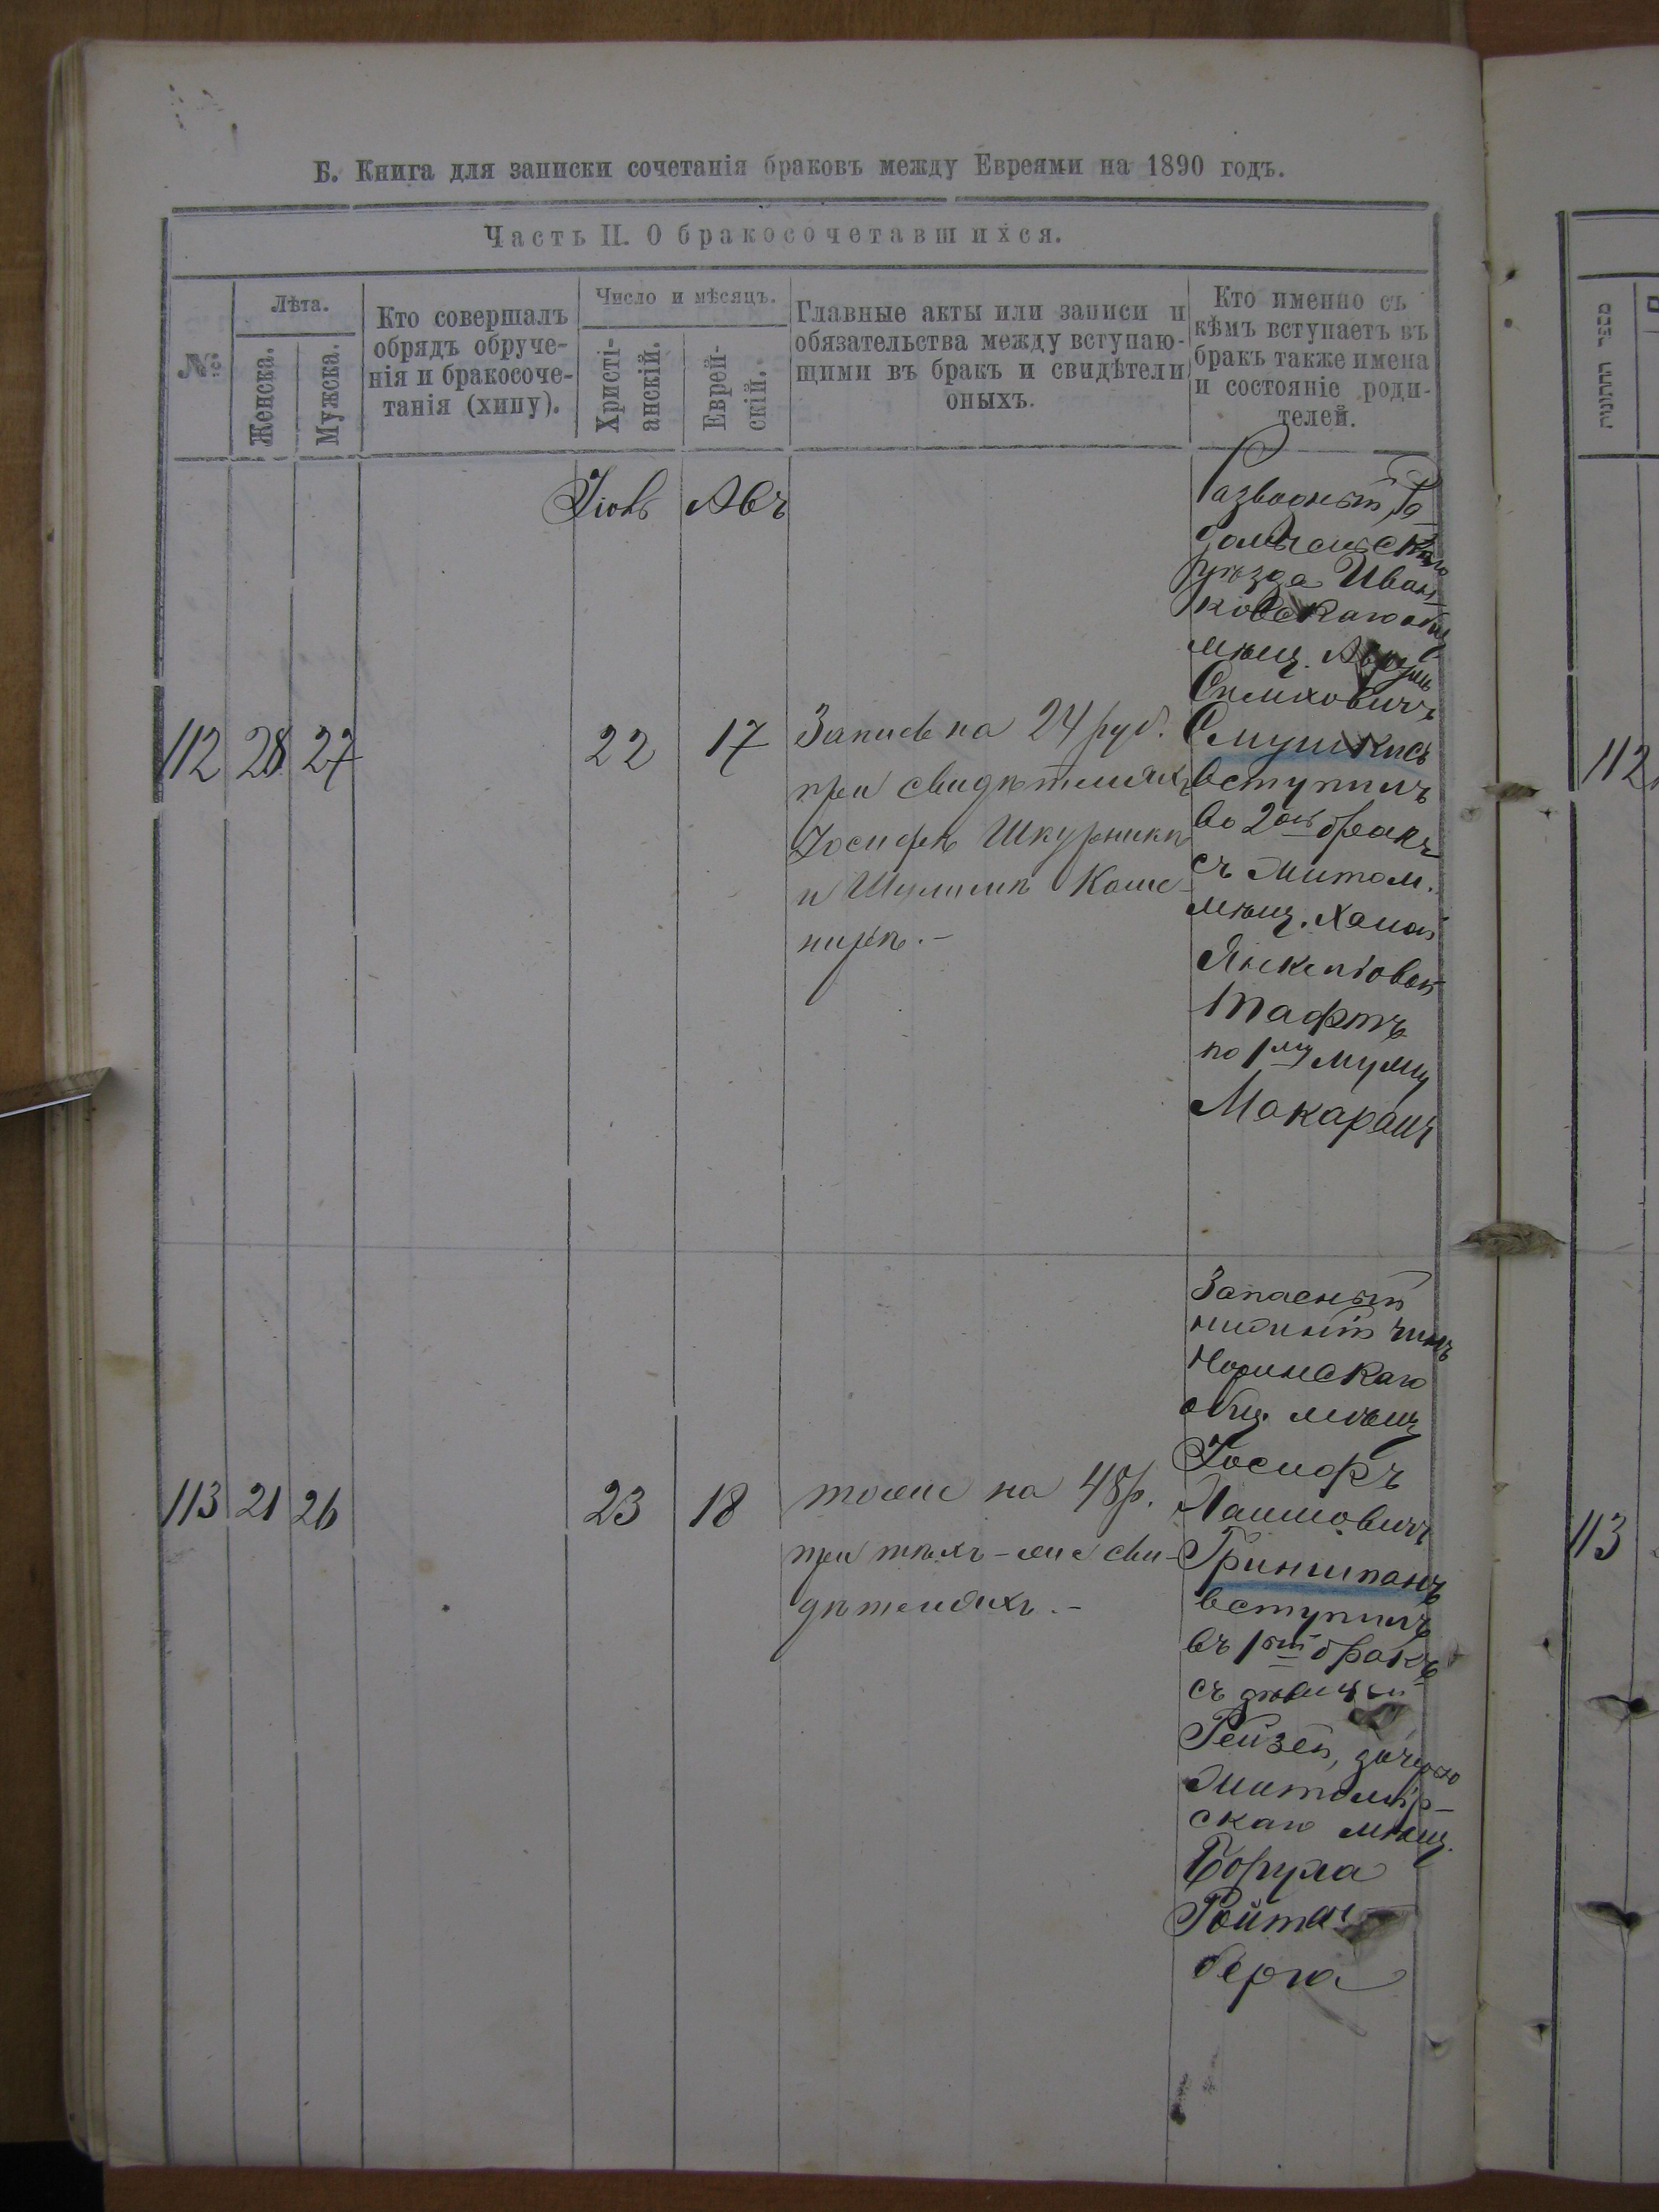 Б. Книга для записки сочетанія браковъ между Евреями на 1890 годъ.
Часть II. О бракосочетавшихся.
№
Лѣта.
Женска.
Мужска.
Кто совершалъ
обрядъ обруче-
нія и бракосоче-
танія (хипу).
Число и мѣсяцъ.
Христі-
анскій.
Еврей-
скій.
Главные акты или записи и
обязательства между вступаю-
щими въ бракъ и свидѣтели
оныхъ.
Кто именно съ
кѣмъ вступаетъ въ
бракъ также имена
и состояніе роди-
телей.
Авъ
112 28 27
22 17
Запись на 24 руб.
при свидѣтеляхъ
Іосифѣ Шкурникѣ
и
нирѣ.-
Разводный Ра-
домысльскаго
уѣзда Иван-
ковскаго общ
мѣщ.
вступилъ
во 2ой бракъ
съ Житом.
мѣщ. Ханой
Янкелевой
Тафтъ
по 1му мужу
113 21 26
23 18
тоже на 48р.
при тѣхъ-же сви-
дѣтеляхъ.-
Запасный
нижній чинъ
Норинскаго
общ. мѣщ
Іосифъ
Гриншпанъ
вступилъ
въ 1ый бракъ
съ дѣвицей
Рейзей, дочерью
Житомір-
скаго мѣщ.
Боруха
Ройтен-
берга
112
113